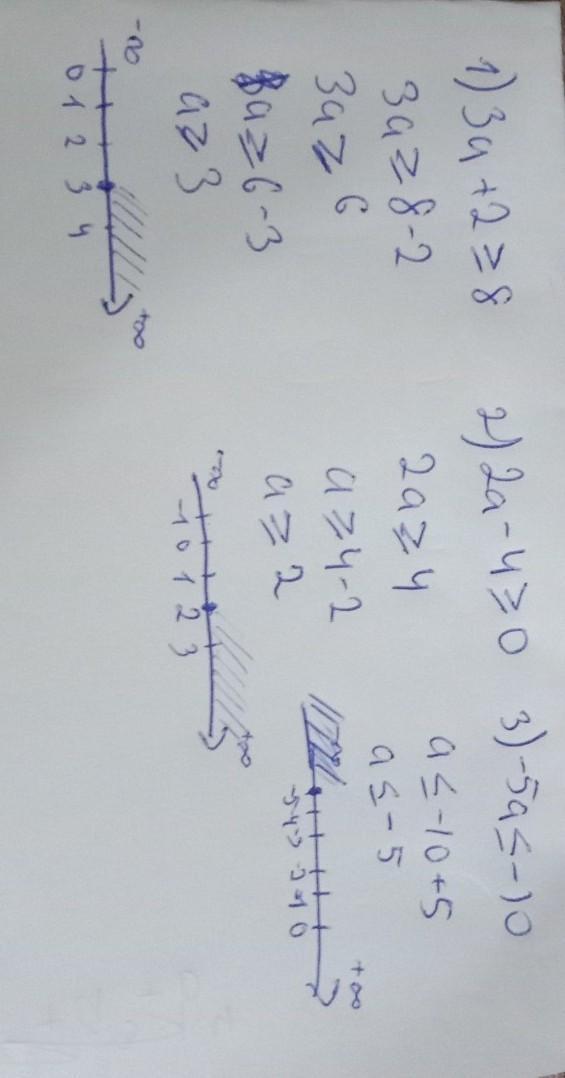 1) 3a + 2 ≥ 8
3a ≥ 8 - 2
3a ≥ 6
a ≥ 6 - 3
a ≥ 3
-∞ +∞
0 1 2 3 4
2) 2a - 4 ≥ 0
2a ≥ 4
a ≥ 4 - 2
a ≥ 2
-∞ +∞
-1 0 1 2 3
3) -5a ≤ -10
a ≤ -10 + 5
a ≤ -5
+∞
-5 -4 -1 0